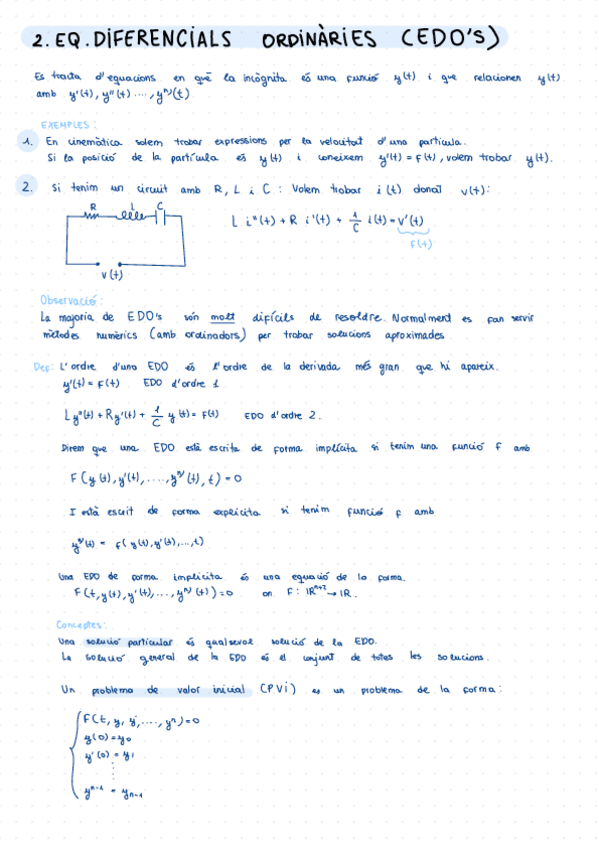 2. EQ. DIFERENCIALS ORDINÀRIES (EDO'S)
Es tracta d'equacions en què la incògnita és una funció y(t) i que relacionen y(t)
amb y'(t), y''(t) ...., yⁿ⁾(t)
EXEMPLES:
1. En cinemàtica solem trobar expressions per la velocitat d'una partícula.
Si la posició de la partícula és y(t) i coneixem y'(t) = F(t), volem trobar y(t).
2. Si tenim un circuit amb R, L i C : Volem trobar i(t) donat v(t):
R L C
L i''(t) + R i'(t) + 1/C i(t) = v'(t)
F(t)
v(t)
Observació:
La majoria de EDO's són molt difícils de resoldre. Normalment es fan servir
mètodes numèrics (amb ordinadors) per trobar solucions aproximades
Def: L'ordre d'una EDO és l'ordre de la derivada més gran que hi apareix.
y'(t) = F(t) EDO d'ordre 1
Ly''(t) + Ry'(t) + 1/C y(t) = F(t) EDO d'ordre 2.
Direm que una EDO està escrita de forma implícita si tenim una funció F amb
F(y(t), y'(t), ...., yⁿ⁾(t), t) = 0
I està escrit de forma explícita si tenim funció f amb
yⁿ⁾(t) = f(y(t), y'(t), ..., t)
Una EDO de forma implícita és una equació de la forma.
F(t, y(t), y'(t), ..., yⁿ⁾(t)) = 0 on F: IRⁿ⁺² → IR.
Conceptes:
Una solució particular és qualsevol solució de la EDO.
La solució general de la EDO és el conjunt de totes les solucions.
Un problema de valor inicial (PVI) es un problema de la forma:
F(t, y, y', ...., yⁿ) = 0
y(0) = y₀
y'(0) = y₁
⋮
yⁿ⁻¹ = yₙ₋₁